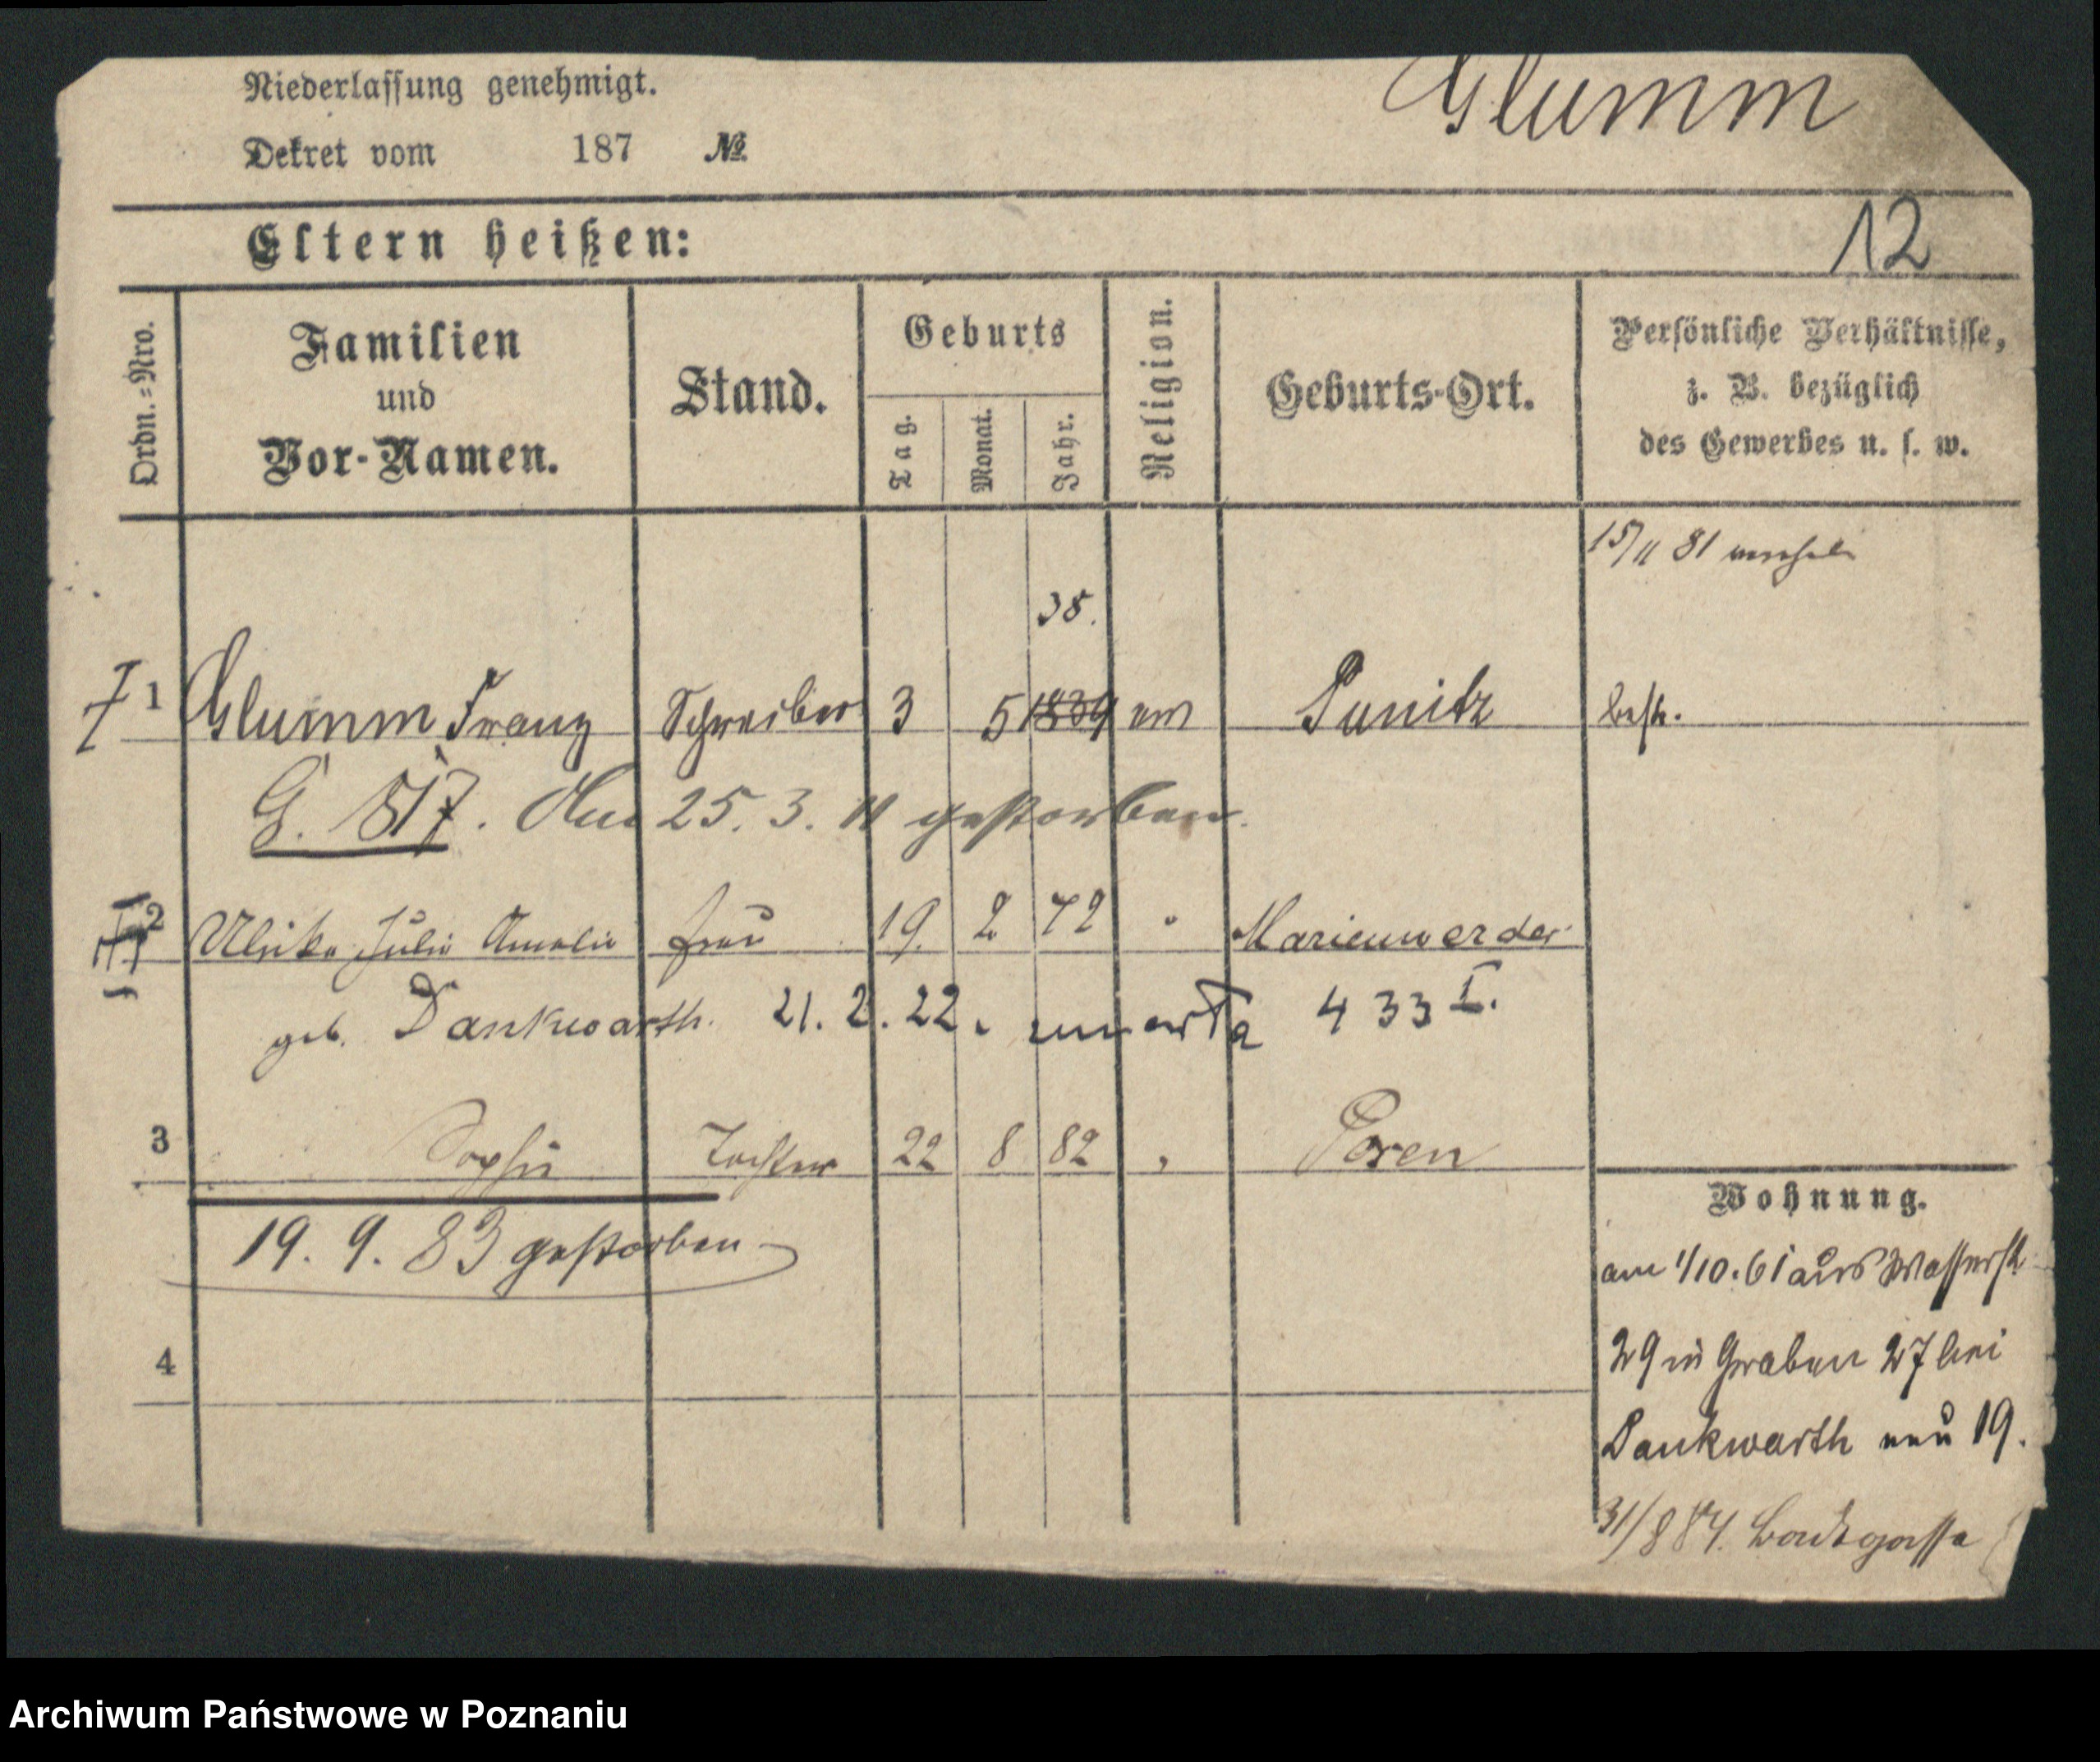 Niederlassung genehmigt.
Glumm
Dekret vom 187 №
Eltern heißen:
12
Ordn.=Nro.
Familien
und
Vor-Namen.
Stand.
Geburts
Tag.
Monat.
Jahr.
Religion.
Geburts-Ort.
Persönliche Verhältnisse,
z. B. bezüglich
des Gewerbes u. s. w.
15/11 81
38.
1 Glumm Franz Schreiber 3 5 1839 Punitz
G. 517. 25. 3. 11 gestorben.
2 Ulrike Julie Amalie Frau 19. 2 Marienwerder
geb. Dankwarth. 21. 2. 22. 433 I.
3 Sophie Tochter 22 8 82 " Posen
19. 9. 83 gestorben
4
Wohnung.
am 1/10. 61 aus Wasserst
29 in Graben 27 bei
Dankwarth neu 19.
31/8 84.
Archiwum Państwowe w Poznaniu